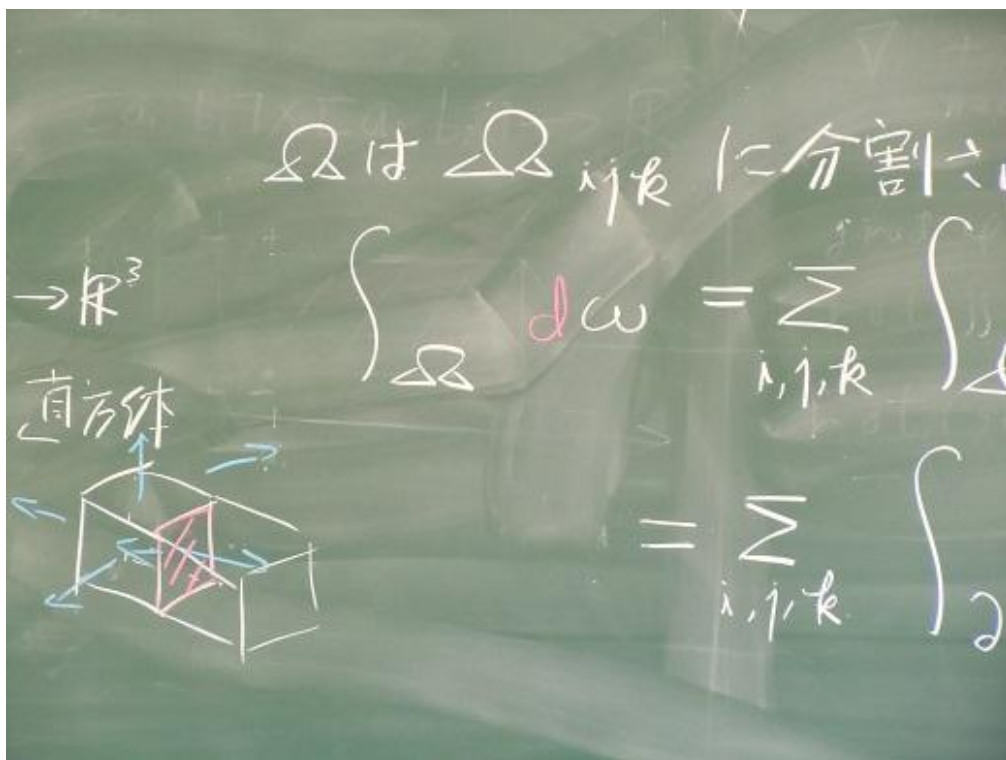 Ωは Ω_{ijk} に分割さ
→ℝ³
∫_Ω dω = Σ_{i,j,k} ∫
直方体
= Σ_{i,j,k} ∫_∂